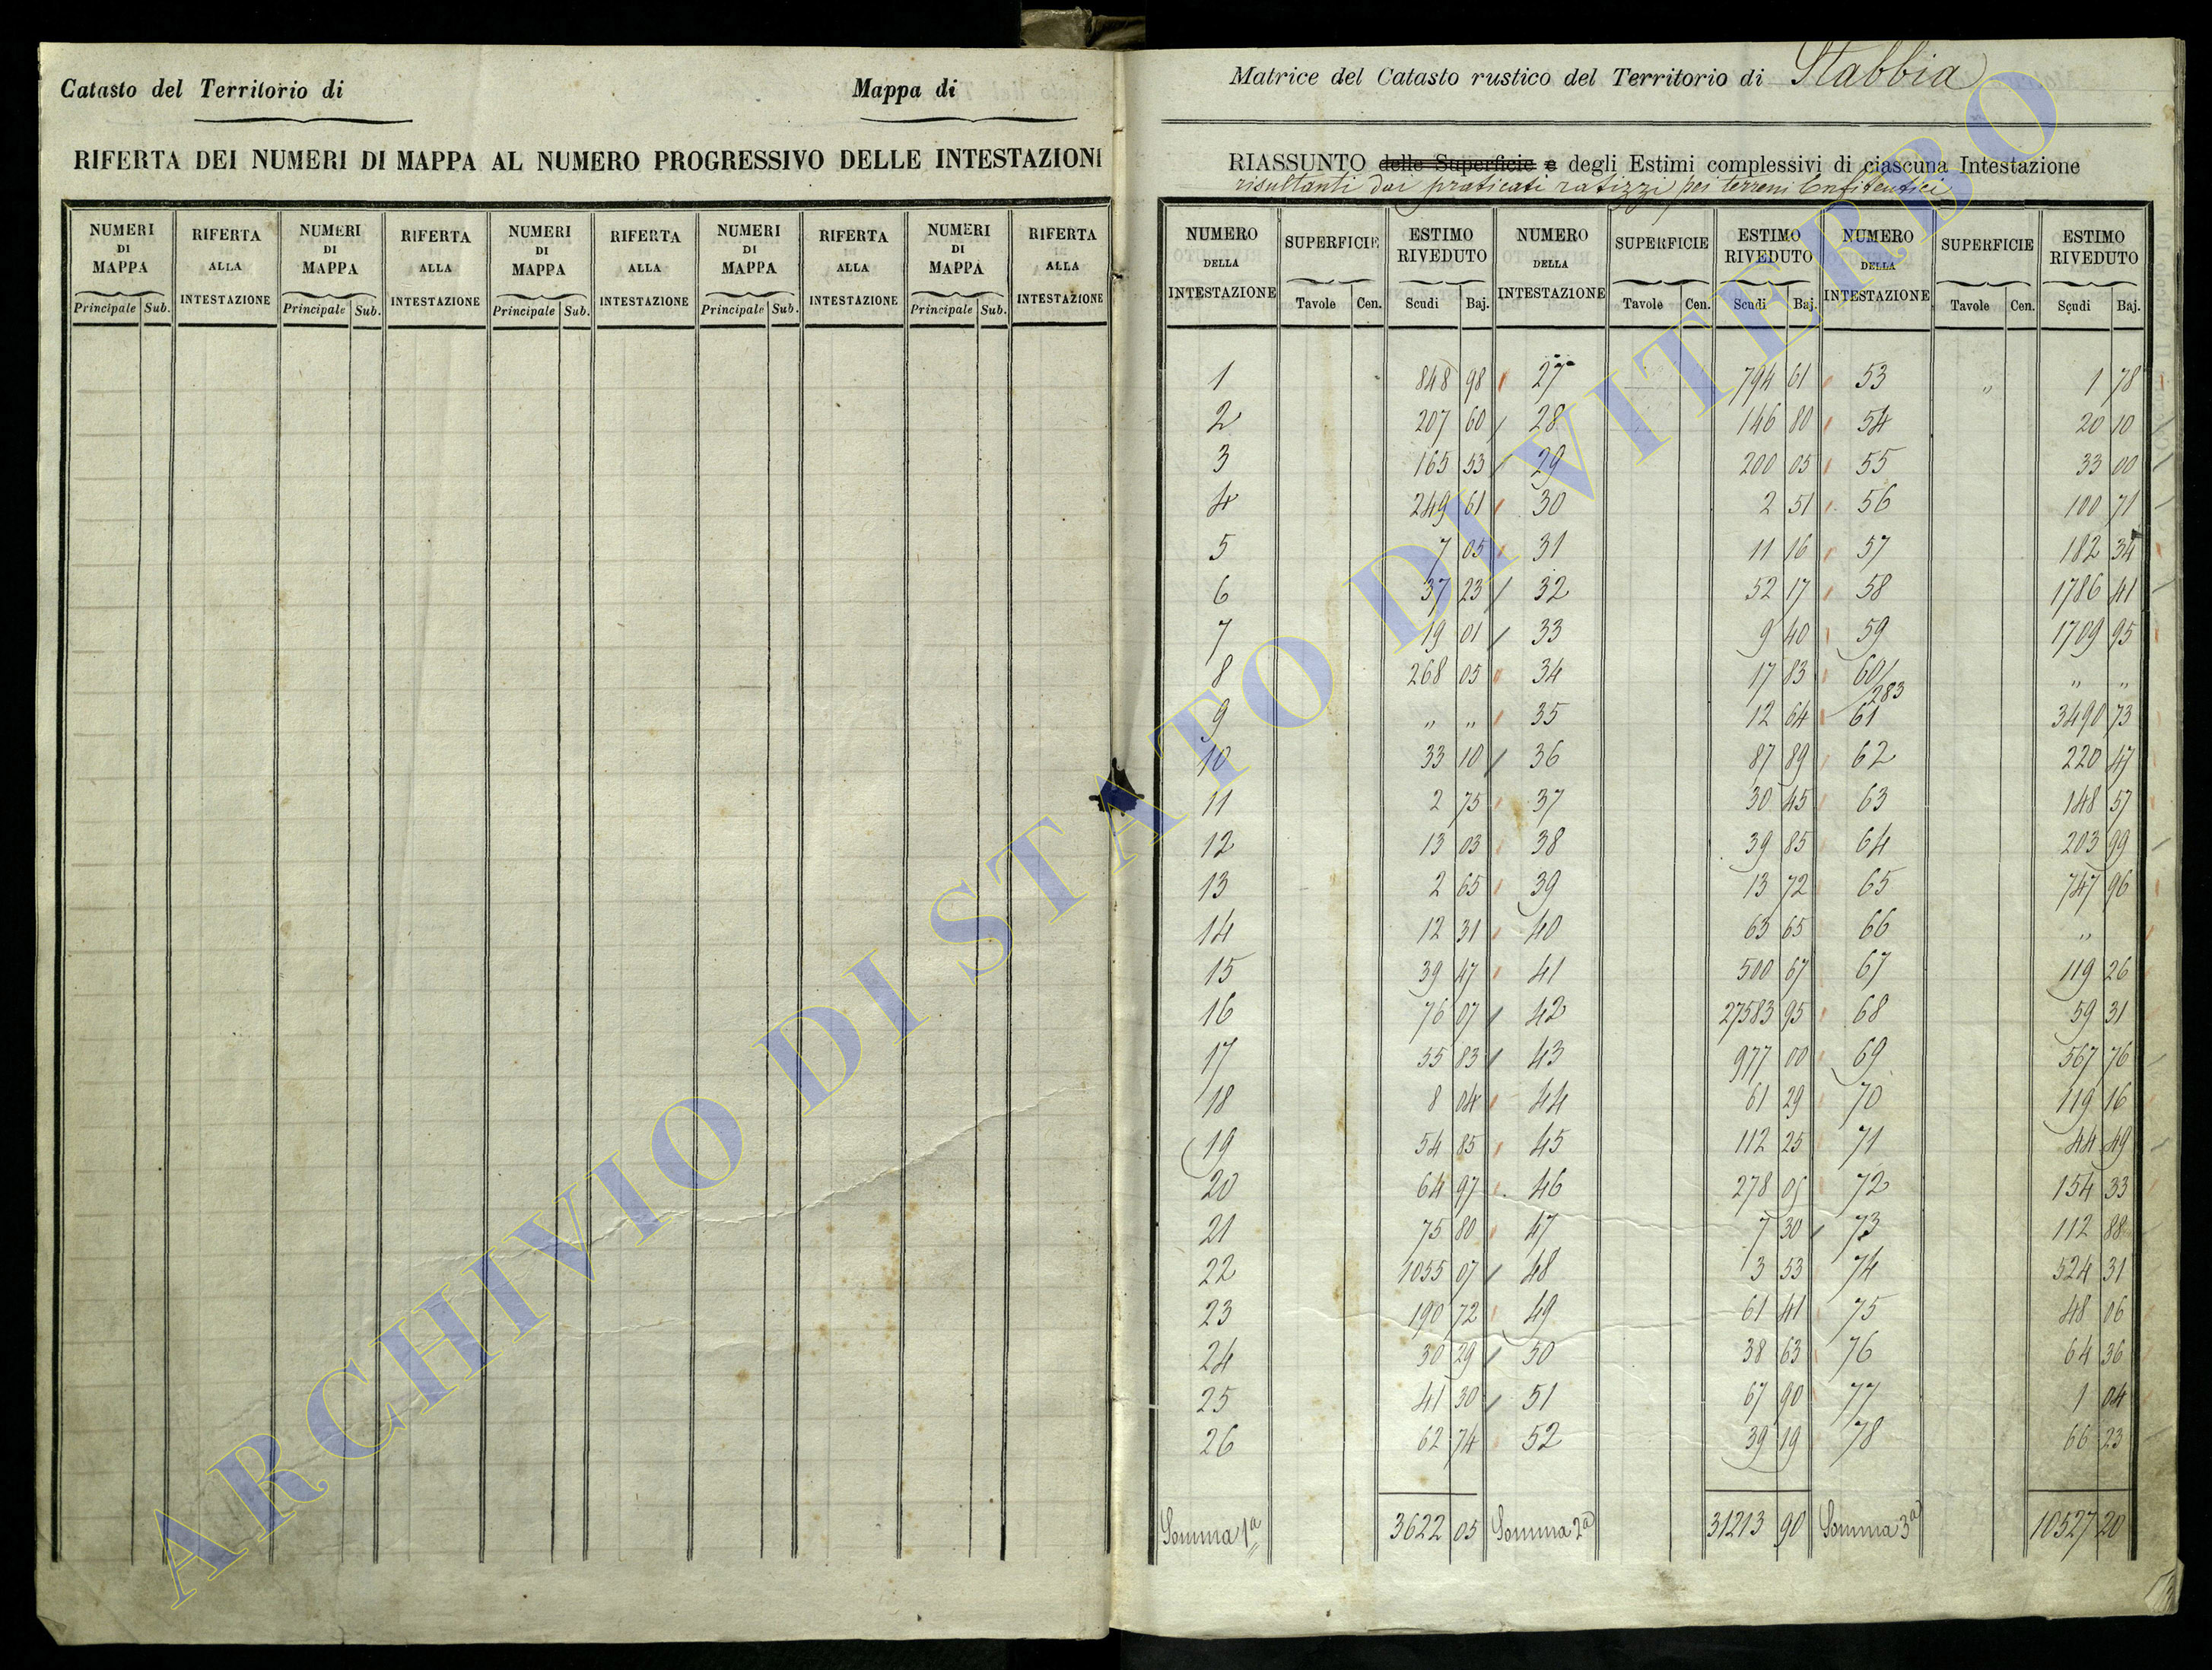 Catasto del Territorio di Mappa di
RIFERTA DEI NUMERI DI MAPPA AL NUMERO PROGRESSIVO DELLE INTESTAZIONI
NUMERI DI MAPPA RIFERTA ALLA INTESTAZIONE NUMERI DI MAPPA RIFERTA ALLA INTESTAZIONE NUMERI DI MAPPA RIFERTA ALLA INTESTAZIONE NUMERI DI MAPPA RIFERTA ALLA INTESTAZIONE NUMERI DI MAPPA RIFERTA ALLA INTESTAZIONE
Principale Sub. Principale Sub. Principale Sub. Principale Sub. Principale Sub.
Matrice del Catasto rustico del Territorio di Stabbia
RIASSUNTO delle Superficie e degli Estimi complessivi di ciascuna Intestazione
risultanti dai praticati ratizzi pei terreni Enfiteutici
NUMERO DELLA INTESTAZIONE SUPERFICIE ESTIMO RIVEDUTO NUMERO DELLA INTESTAZIONE SUPERFICIE ESTIMO RIVEDUTO NUMERO DELLA INTESTAZIONE SUPERFICIE ESTIMO RIVEDUTO
Tavole Cen. Scudi Baj. Tavole Cen. Scudi Baj. Tavole Cen. Scudi Baj.
1 848 98 27 794 61 53 " 1 78
2 207 60 28 146 80 54 20 10
3 165 53 29 200 05 55 33 00
4 249 61 30 2 51 56 100 71
5 7 05 31 11 16 57 182 34
6 37 23 32 52 17 58 1786 41
7 19 01 33 9 40 59 1709 95
8 268 05 34 17 83 60/283 " "
9 " " 35 12 64 61 3490 73
10 33 10 36 87 89 62 220 47
11 2 75 37 30 45 63 148 57
12 13 03 38 39 85 64 203 99
13 2 65 39 13 72 65 747 96
14 12 31 40 63 65 66 "
15 39 47 41 500 67 67 119 26
16 76 07 42 27583 95 68 59 31
17 55 83 43 977 00 69 567 76
18 8 04 44 61 29 70 119 16
19 54 85 45 112 25 71 44 49
20 64 97 46 278 05 72 154 33
21 75 80 47 7 30 73 112 88
22 1055 07 48 3 53 74 524 31
23 190 72 49 61 41 75 48 06
24 30 29 50 38 63 76 64 36
25 41 30 51 67 90 77 1 04
26 62 74 52 39 19 78 66 23
Somma 1ª 3622 05 Somma 2ª 31213 90 Somma 3ª 10527 20
ARCHIVIO DI STATO DI VITERBO